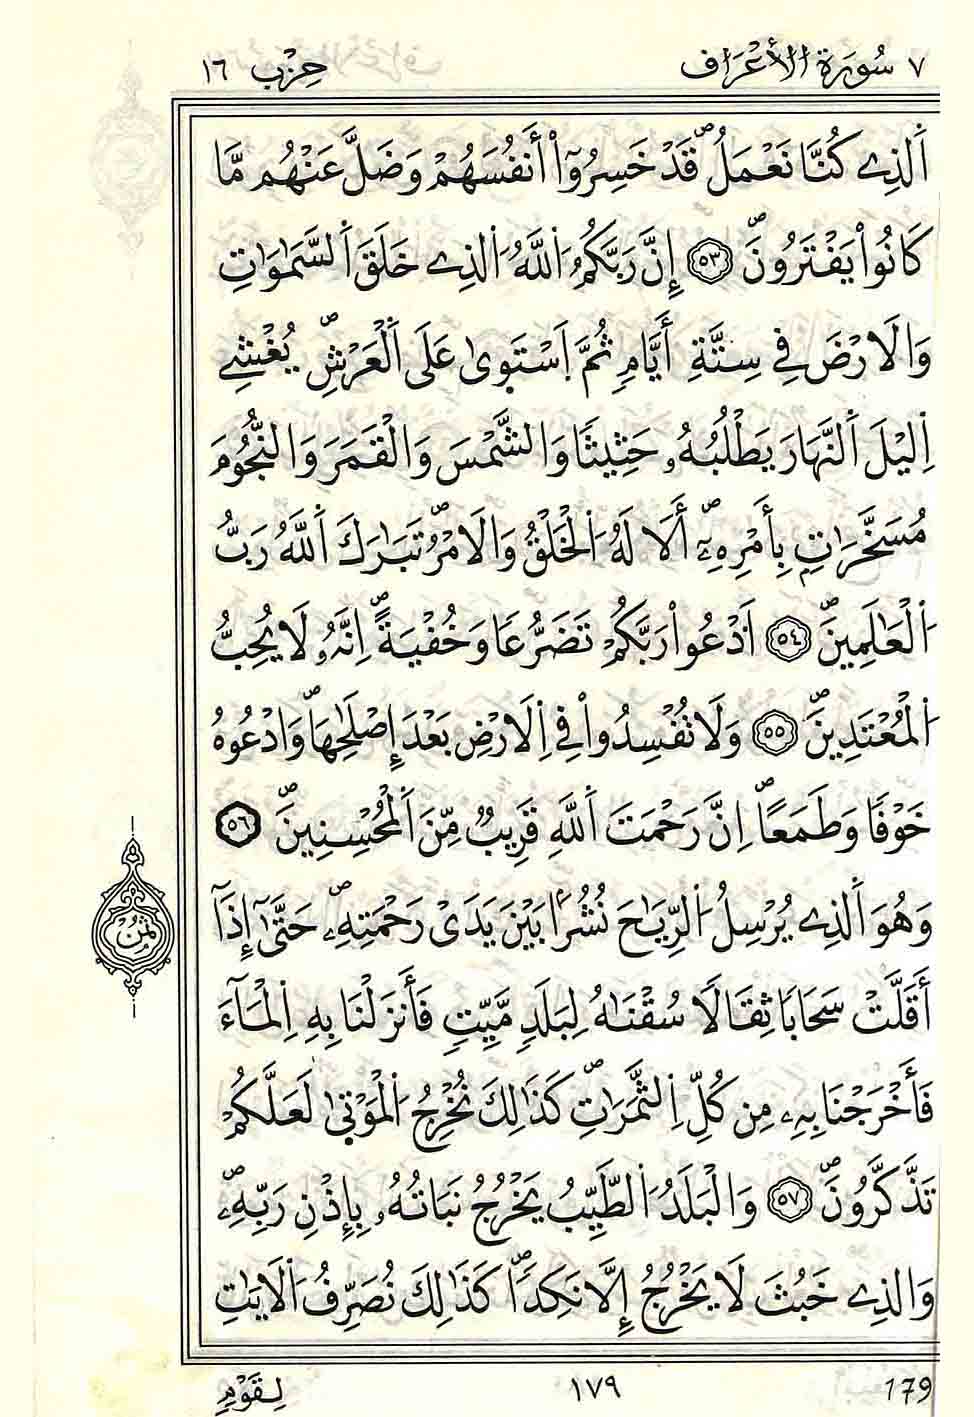 ٧ سُورَةُ الأَعْرَاف حِزْب ١٦
اَ۬لذِے كُنَّا نَعْمَلُۖ قَدْ خَسِرُوٓاْ أَنفُسَهُمْ وَضَلَّ عَنْهُم مَّا
كَانُواْ يَفْتَرُونَۖ ٥٣ إِنَّ رَبَّكُمُ اُ۬للَّهُ اُ۬لذِے خَلَقَ اَ۬لسَّمَٰوَٰتِ
وَالَارْضَ فِے سِتَّةِ أَيَّامٖ ثُمَّ اَ۪سْتَو۪يٰ عَلَي اَ۬لْعَرْشِۖ يُغْشِے
اِ۬ليْلَ اَ۬لنَّهَارَ يَطْلُبُهُۥ حَثِيثاٗ وَالشَّمْسَ وَالْقَمَرَ وَالنُّجُومَ
مُسَخَّرَٰتِۭ بِأَمْرِهِۦٓۖ أَلَا لَهُ اُ۬لْخَلْقُ وَالَامْرُۖ تَبَٰرَكَ اَ۬للَّهُ رَبُّ
اُ۬لْعَٰلَمِينَۖ ٥٤ اَ۟دْعُواْ رَبَّكُمْ تَضَرُّعاٗ وَخُفْيَةًۖ اِنَّهُۥ لَا يُحِبُّ
اُ۬لْمُعْتَدِينَۖ ٥٥ وَلَا تُفْسِدُواْ فِے اِ۬لَارْضِ بَعْدَ إِصْلَٰحِهَاۖ وَادْعُوهُ
خَوْفاٗ وَطَمَعاًۖ اِنَّ رَحْمَتَ اَ۬للَّهِ قَرِيبٞ مِّنَ اَ۬لْمُحْسِنِينَۖ ٥٦
وَهُوَ اَ۬لذِے يُرْسِلُ اُ۬لرِّيَٰحَ نُشُراَۢ بَيْنَ يَدَےْ رَحْمَتِهِۦۖ حَتَّيٰٓ إِذَآ
أَقَلَّتْ سَحَاباٗ ثِقَالاٗ سُقْنَٰهُ لِبَلَدٖ مَّيِّتٖ فَأَنزَلْنَا بِهِ اِ۬لْمَآءَ
فَأَخْرَجْنَا بِهِۦ مِن كُلِّ اِ۬لثَّمَرَٰتِۖ كَذَٰلِكَ نُخْرِجُ اُ۬لْمَوْت۪يٰ لَعَلَّكُمْ
تَذَّكَّرُونَۖ ٥٧ وَالْبَلَدُ اُ۬لطَّيِّبُ يَخْرُجُ نَبَاتُهُۥ بِإِذْنِ رَبِّهِۦۖ
وَالذِے خَبُثَ لَا يَخْرُجُ إِلَّا نَكِداٗۖ كَذَٰلِكَ نُصَرِّفُ اُ۬لَايَٰتِ
ثُمُن
لِقَوْمٖ ١٧٩ 179